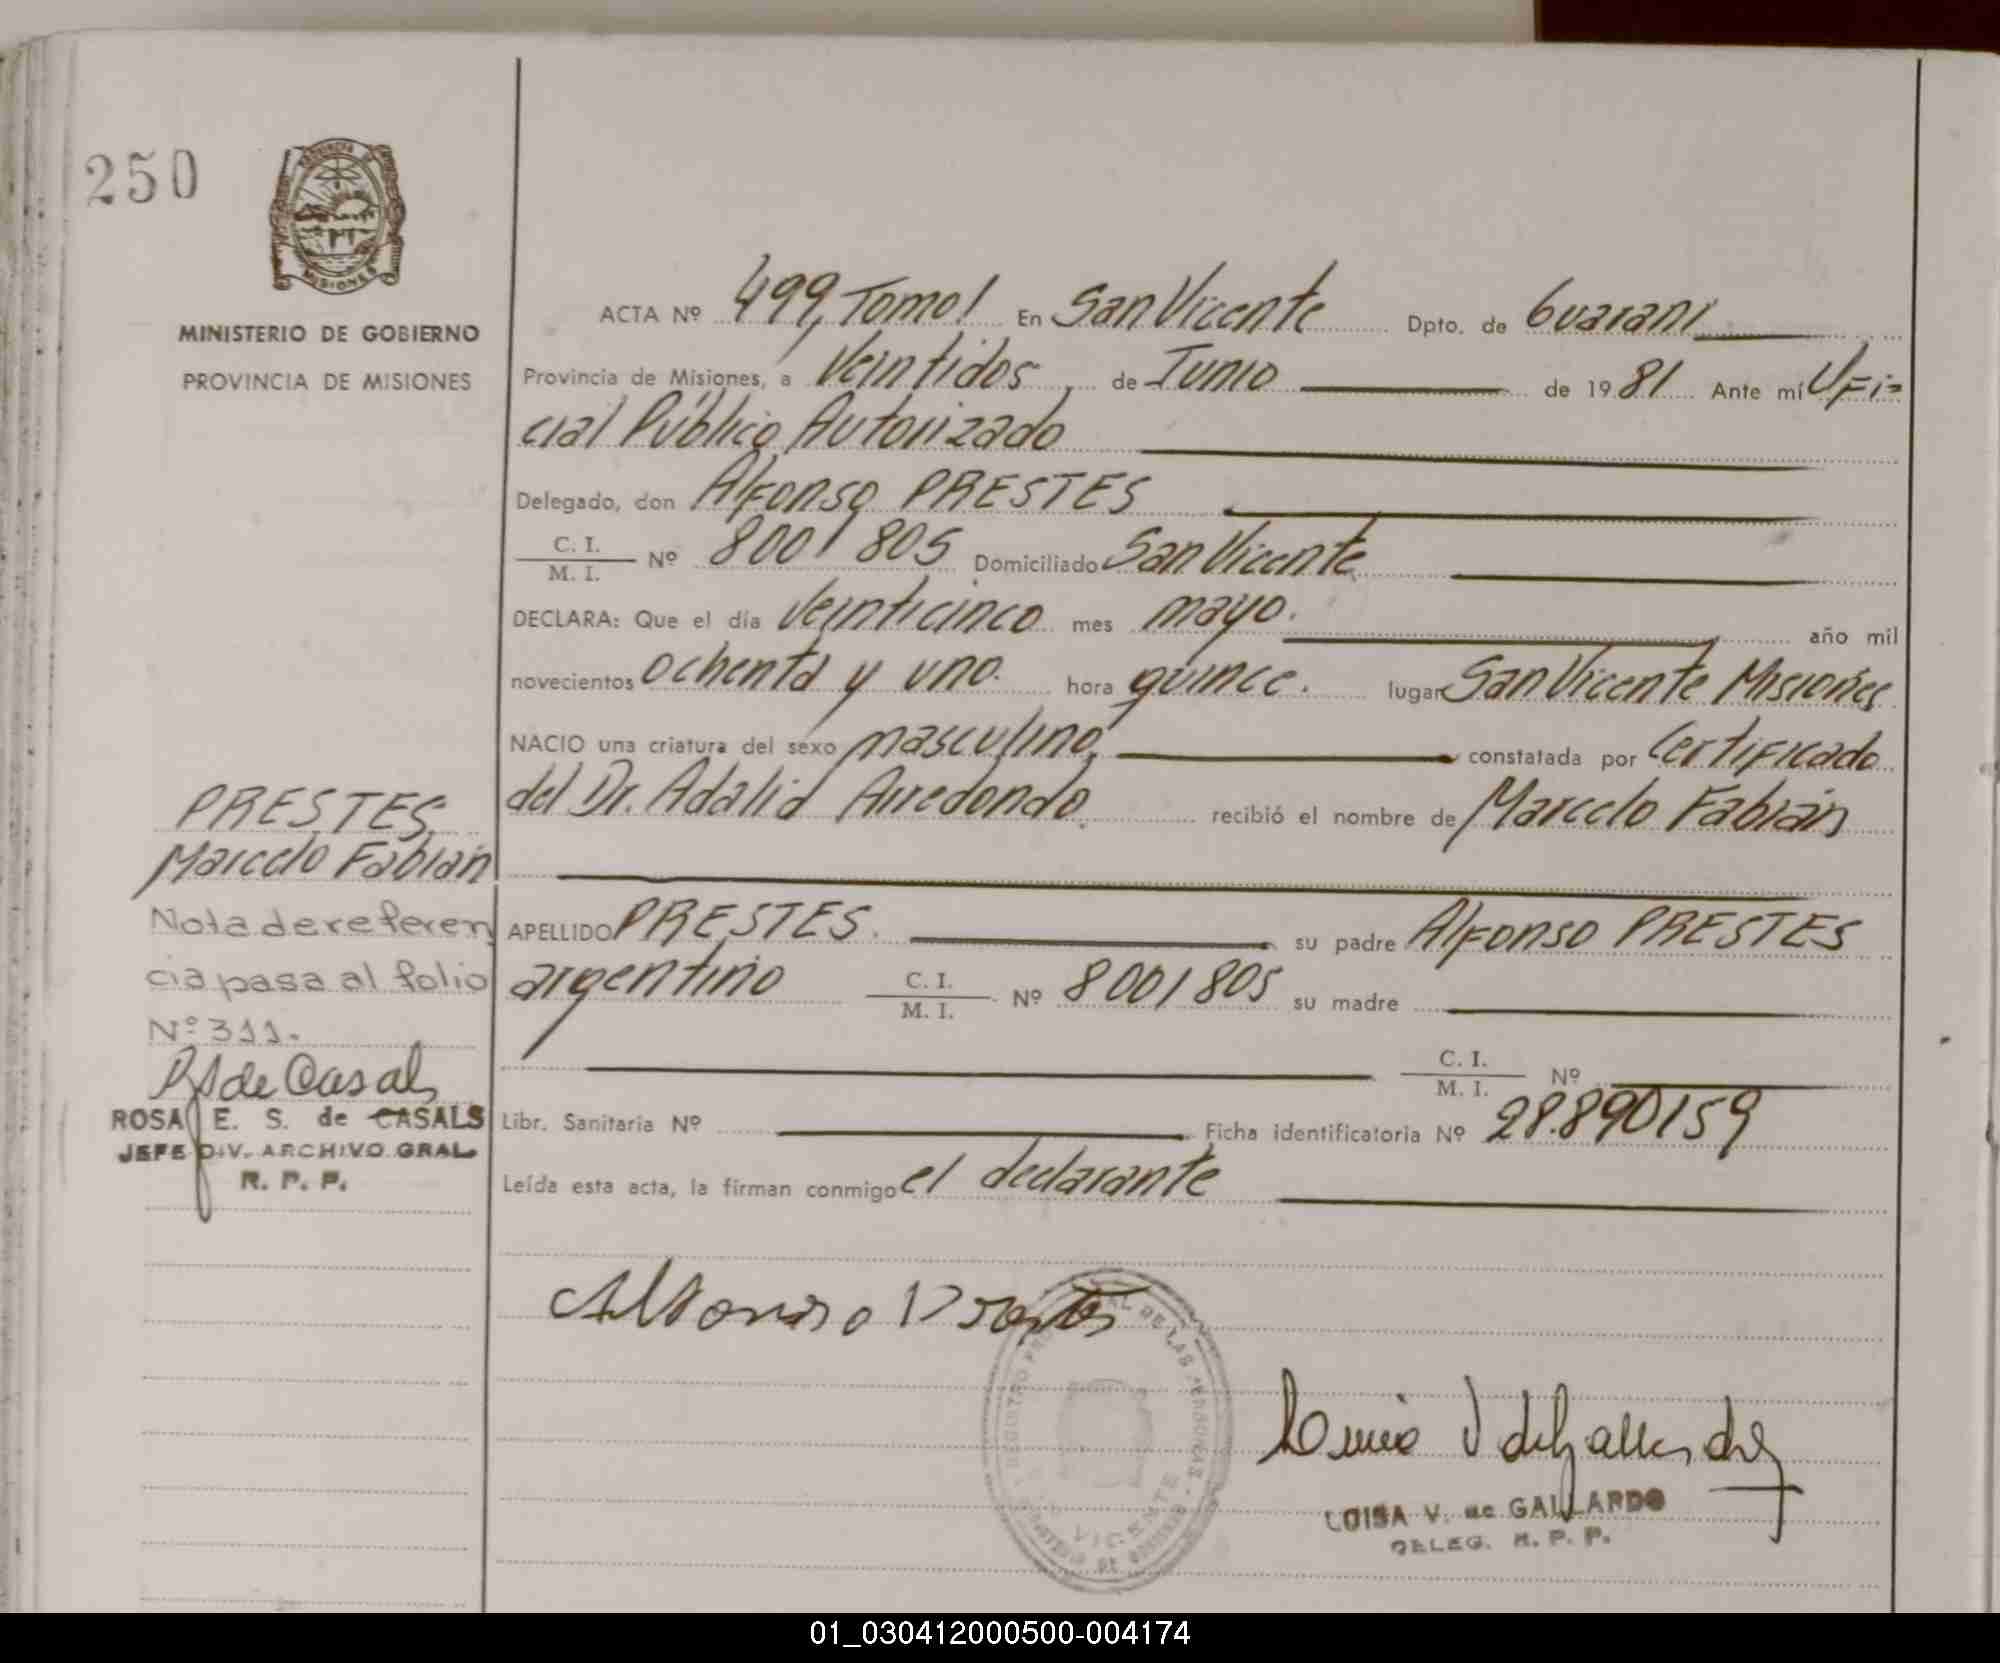 250
MINISTERIO DE GOBIERNO
PROVINCIA DE MISIONES
MISIONES
ACTA Nº 499, Tomo I En San Vicente Dpto. de Guaraní
Provincia de Misiones, a Veintidos de Junio de 1981 Ante mí Ofi=
cial Público Autorizado
Delegado, don Alfonso PRESTES
C. I.
M. I. Nº 8001805 Domiciliado San Vicente
DECLARA: Que el día Veinticinco mes mayo. año mil
novecientos ochenta y uno. hora quince. lugar San Vicente Misiones
NACIO una criatura del sexo masculino, constatada por Certificado
del Dr. Adalid Arredondo. recibió el nombre de Marcelo Fabián
PRESTES,
Marcelo Fabián
Nota de referen
cia pasa al folio
Nº 311.
RS de Casals
ROSA E. S. de CASALS
JEFE DIV. ARCHIVO GRAL.
R. P. P.
APELLIDO PRESTES. su padre Alfonso PRESTES
argentino C. I.
M. I. Nº 8001805 su madre
C. I.
M. I. Nº
Libr. Sanitaria Nº Ficha identificatoria Nº 28.890159
Leída esta acta, la firman conmigo el declarante
Alfonso Prestes
DE LAS PERSONAS
VICENTE
LUISA V. de GALLARDO
DELEG. R. P. P.
01_030412000500-004174